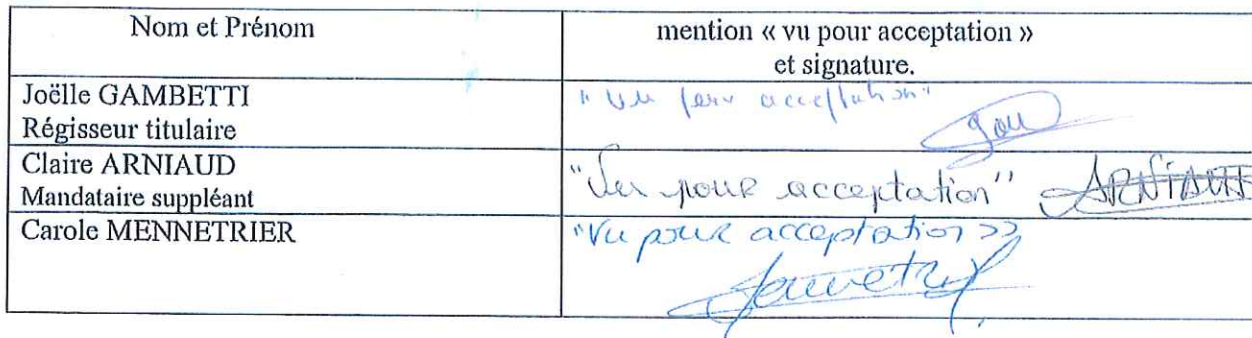 Nom et Prénom
mention « vu pour acceptation »
et signature.
Joëlle GAMBETTI
Régisseur titulaire
"vu pour acceptation"
Claire ARNIAUD
Mandataire suppléant
"Vu pour acceptation" ARNIAUD
Carole MENNETRIER
"Vu pour acceptation »